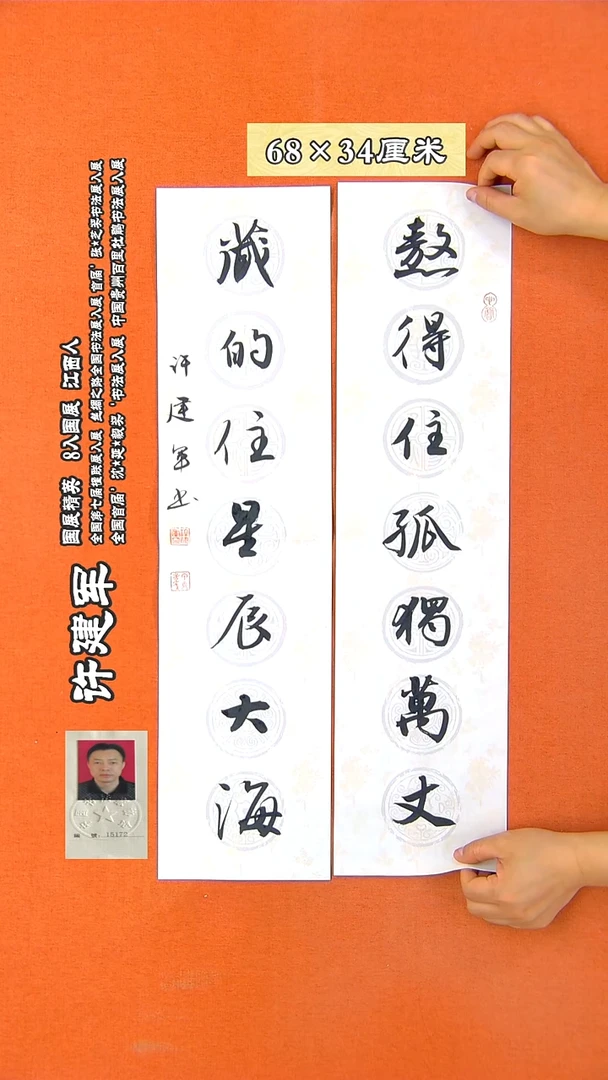 68×34厘米
熬得住孤獨萬丈
藏的住星辰大海
许建军书
国展精英 8入国展 江西人
全国第七届楹联展入展 丝绸之路全国书法展入展 首届'张*芝奖书法展入展
全国首届'沈*延*毅奖'书法展入展 中国贵州百里杜鹃书法展入展
许建军
编号: 15172